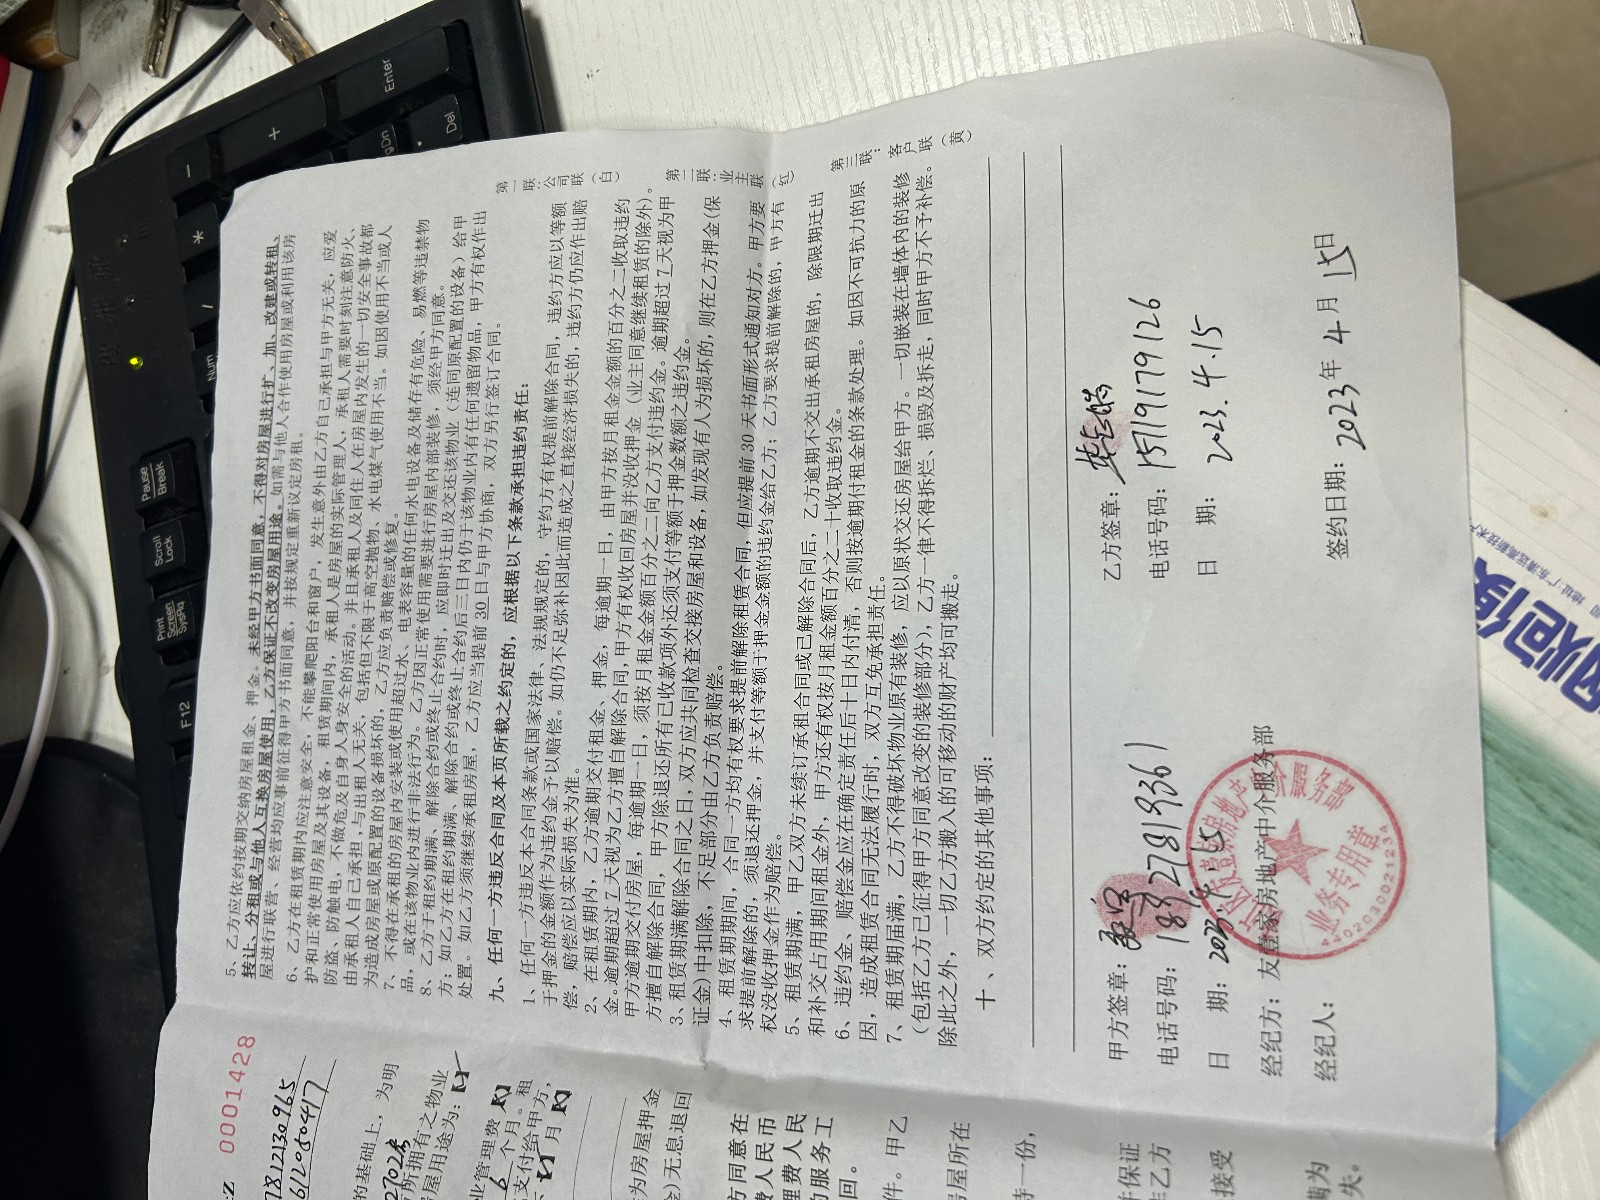 5、乙方应依约按期交纳房屋租金、押金。未经甲方书面同意，不得对房屋进行扩、加、改建或转租、
转让、分租或与他人互换房屋使用，乙方保证不改变房屋用途。如需与他人合作使用房屋或利用该房
屋进行联营、经营均应事前征得甲方书面同意，并按规定重新议定房租。
6、乙方在租赁期内应注意安全，不能攀爬阳台和窗户，发生意外由乙方自己承担与甲方无关，应爱
护和正常使用房屋及其设备，租赁期间内，承租人是房屋的实际管理人，承租人需要时刻注意防火、
防盗、防触电，不做危及自身人身安全的活动。并且承租人及同住人在房屋内发生的一切安全事故都
由承租人自己承担，与出租人无关，包括但不限于高空抛物、水电煤气使用不当。如因使用不当或人
为造成房屋或原配置的设备损坏的，乙方应负责赔偿或修复。
7、不得在承租的房屋内安装或使用超过水、电表容量的任何水电设备及储存有危险、易燃等违禁物
品，或在该物业内进行非法行为。乙方因正常使用需要进行房屋内部装修，须经甲方同意。
8、乙方于租约期满、解除合约或终止合约时，应即时迁出及交还该物业（连同原配置的设备）给甲
方；如乙方在租约期满、解除合约或终止合约后三日内仍于该物业内有任何遗留物品，甲方有权作出
处置。如乙方须继续承租房屋，乙方应当提前30日与甲方协商，双方另行签订合同。
九、任何一方违反合同及本页所载之约定的，应根据以下条款承担违约责任：
1、任何一方违反本合同条款或国家法律、法规规定的，守约方有权提前解除合同，违约方应以等额
于押金的金额作为违约金予以赔偿。如仍不足弥补因此而造成之直接经济损失的，违约方仍应作出赔
偿，赔偿应以实际损失为准。
2、在租赁期内，乙方逾期交付租金、押金，每逾期一日，由甲方按月租金金额的百分之二收取违约
金。逾期超过7天视为乙方擅自解除合同，甲方有权收回房屋并没收押金（业主同意继续租赁的除外）。
甲方逾期交付房屋，每逾期一日，须按月租金金额百分之二向乙方支付违约金。逾期超过7天视为甲
方擅自解除合同，甲方除退还所有已收款项外还须支付等额于押金数额之违约金。
3、租赁期满解除合同之日，双方应共同检查交接房屋和设备，如发现有人为损坏的，则在乙方押金（保
证金）中扣除，不足部分由乙方负责赔偿。
4、租赁期期间，合同一方均有权要求提前解除租赁合同，但应提前30天书面形式通知对方。甲方要
求提前解除的，须退还押金，并支付等额于押金金额的违约金给乙方；乙方要求提前解除的，甲方有
权没收押金作为赔偿。
5、租赁期满，甲乙双方未续订承租合同或已解除合同后，乙方逾期不交出承租房屋的，除限期迁出
和补交占用期间租金外，甲方还有权按月租金额百分之二十收取违约金。
6、违约金、赔偿金应在确定责任后十日内付清，否则按逾期付租金的条款处理。如因不可抗力的原
因，造成租赁合同无法履行时，双方互免承担责任。
7、租赁期届满，乙方不得破坏物业原有装修，应以原状交还房屋给甲方。一切嵌装在墙体内的装修
（包括乙方已征得甲方同意改变的装修部分），乙方一律不得拆烂、损毁及拆走，同时甲方不予补偿。
除此之外，一切乙方搬入的可移动的财产均可搬走。
十、双方约定的其他事项：
第一联：公司联（白）
第二联：业主联（红）
第三联：客户联（黄）
甲方签章：
电话号码：18927819361
日 期：2023.4.15
经纪方：友壹家房地产中介服务部
经纪人：
乙方签章：
电话号码：15119179126
日 期：2023.4.15
签约日期：2023年4月15日
业务专用章
0001428
的基础上，为明
所拥有之物业
屋用途为：
业管理费
6个月。租
支付给甲方，
月
为房屋押金
金）无息退回
方同意在
费人民币
理费人民
的服务工
回。
件。甲乙
房屋所在
持一份，
并保证
乙方
接受
满为
失。
Enter
+
−
*
/
Num
PgDn
Del
Pause
Break
Scroll
Lock
Print
Screen
SysRq
F12